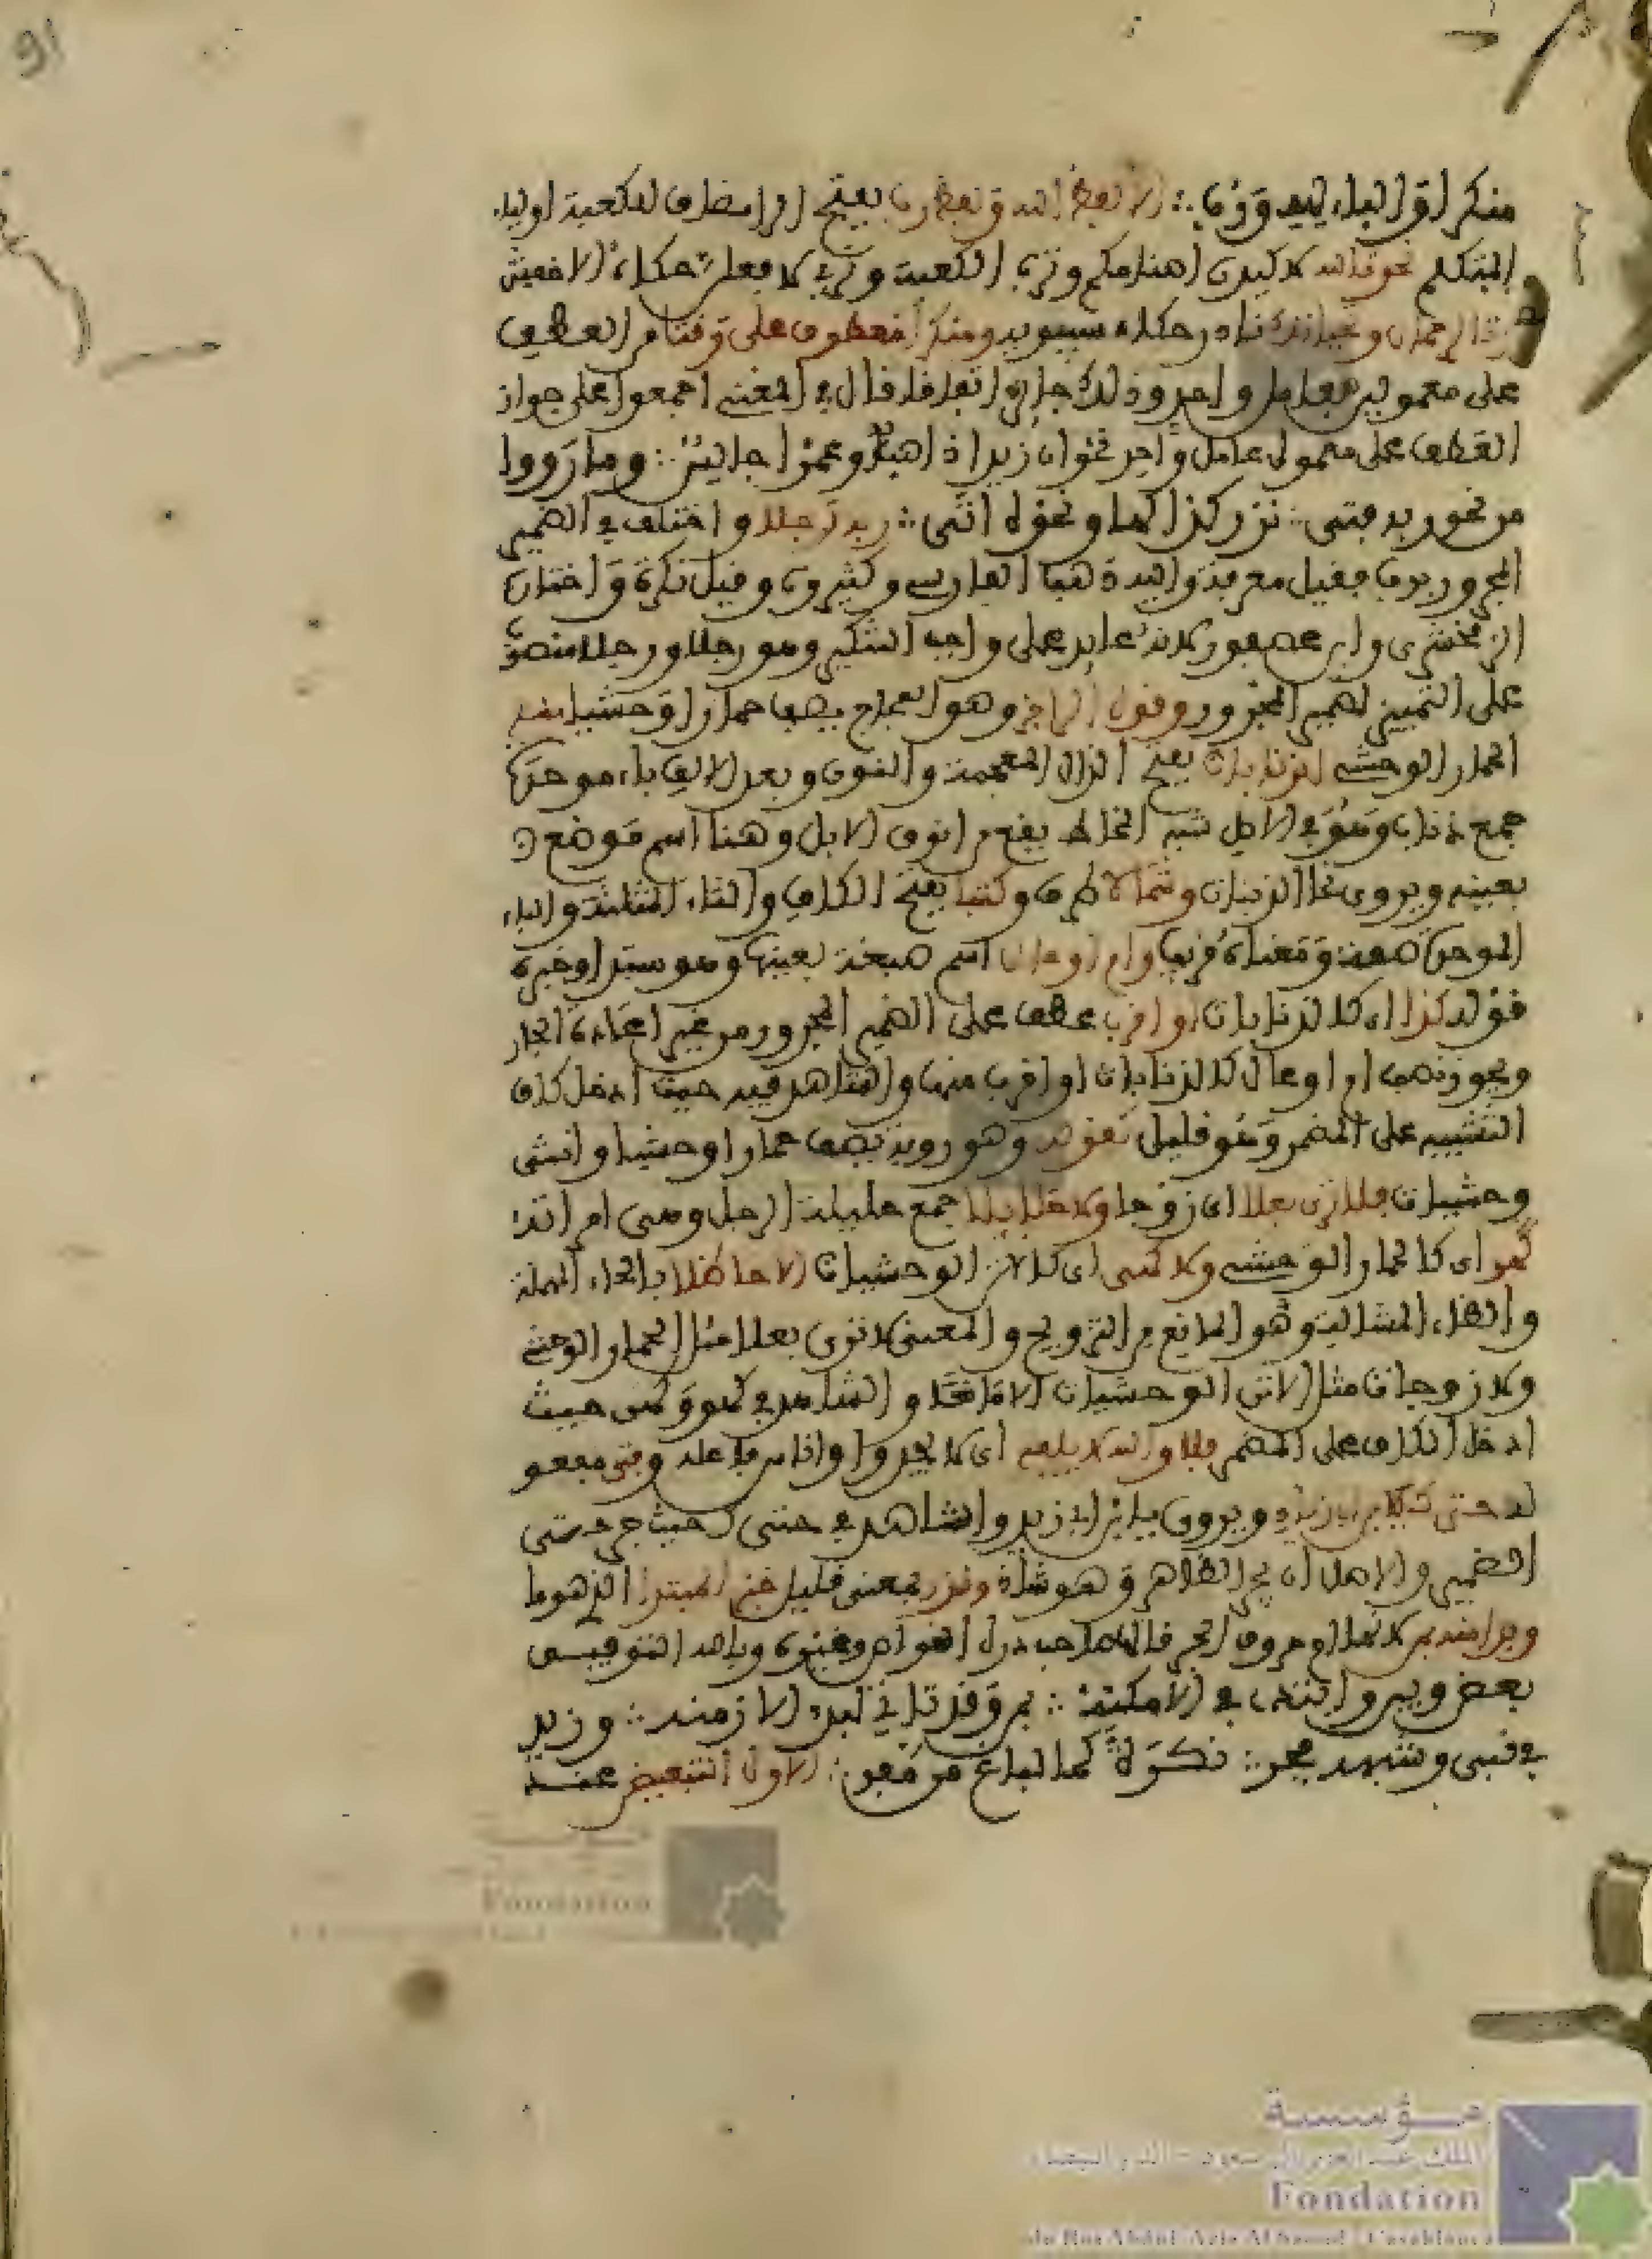 91
منكرا والتاء لله ورب ∴ الا لفظ الله ولفظ رب بفتح الرا مضاف للكعبة او لياء
المتكلم نحو تالله لاكيدن اصنامكم وترب الكعبة وتربي لافعلن حكاه الاخفش
وتالرحمان وتحياتك نادر حكاه سيبويه ومنكرا معطوف على وقتا من العطف
على معمولين لعامل واحد وذلك جايز اتفاقا قال في المغني اجمعوا على جواز
العطف على معمولي عامل واحد نحو ان زيدا ذاهب وعمرا جالس ∴ وما رووا
من نحو ربه فتى ∴ نزر كذا كها ونحوه اتى ∴ ربه رجلا واختلف في الضمير
المجرور برب فقيل معرفة واليه ذهب الفارسي وكثيرون وقيل نكرة واختاره
الزمخشري وابن عصفور لانه عايد على واجب التنكير وهو رجلا ورجلا منصوب
على التمييز لضمير المجرور وقول الراجز وهو العجاج يصف حمارا وحشيا
الحمار الوحشي الذنابات بفتح الذال المعجمة والنون وبعد الالف باء موحدة
جمع ذناب وهو في الاصل شبه المخاط يقع من انوف الابل وهنا اسم موضع
بعينه ويروى نحا الذنبات وشمالا ظرف وكثبا بفتح الكاف والثاء المثلثة والباء
الموحدة صفة ومعناه قريبا وام اوعال اسم هضبة بعينها وهو مبتدا وخبره
قوله كها اي كالذنابات او اقربا عطف على الضمير المجرور من غير اعادة الجار
ويجوز نصب ام اوعال كالذنابات او اقرب منها والشاهد فيه حيث ادخل كاف
التشبيه على المضمر وهو قليل كقوله وهو روبة يصف حمارا وحشيا واتنا
وحشيات فلا ترى بعلا اي زوجا ولا حلايلا جمع حليلة الرجل وهي امراته
كهو اي كالحمار الوحشي ولا كهن اي كالاتن الوحشيات الا حاظلا بالحاء المهملة
والظاء المشالة وهو المانع من التزويج والمعنى لا ترى بعلا مثل الحمار الوحشي
ولا زوجات مثل الاتن الوحشيات الا مانعا والشاهد في كهو وكهن حيث
ادخل الكاف على المضمر فلا والله لا يلفي اي لا يجد واناس فاعله وفتى مفعو
له حتاك يابن ابي زياد ويروى يابن ابي زيد والشاهد في حتاك حيث جر حتى
الضمير والاصل ان يجر الظاهر وهو شاذ ونزر بمعنى قليل خبر المبتدا الذي هو ما
وبدا منه لانها ام حروف الجر قاله صاحب درة الغواص وغيره وبالله التوفيق
بعض وبين وابتدئ في الامكنة ∴ بمن وقد تاتي لبدء الازمنة ∴ وزيد
في نفي وشبهه فجر ∴ نكرة كما لباغ من مفر ∴ الاول التبعيض عند
مؤسسة
الملك عبد العزيز آل سعود - الدار البيضاء
Fondation
du Roi Abdul-Aziz Al Saoud - Casablanca